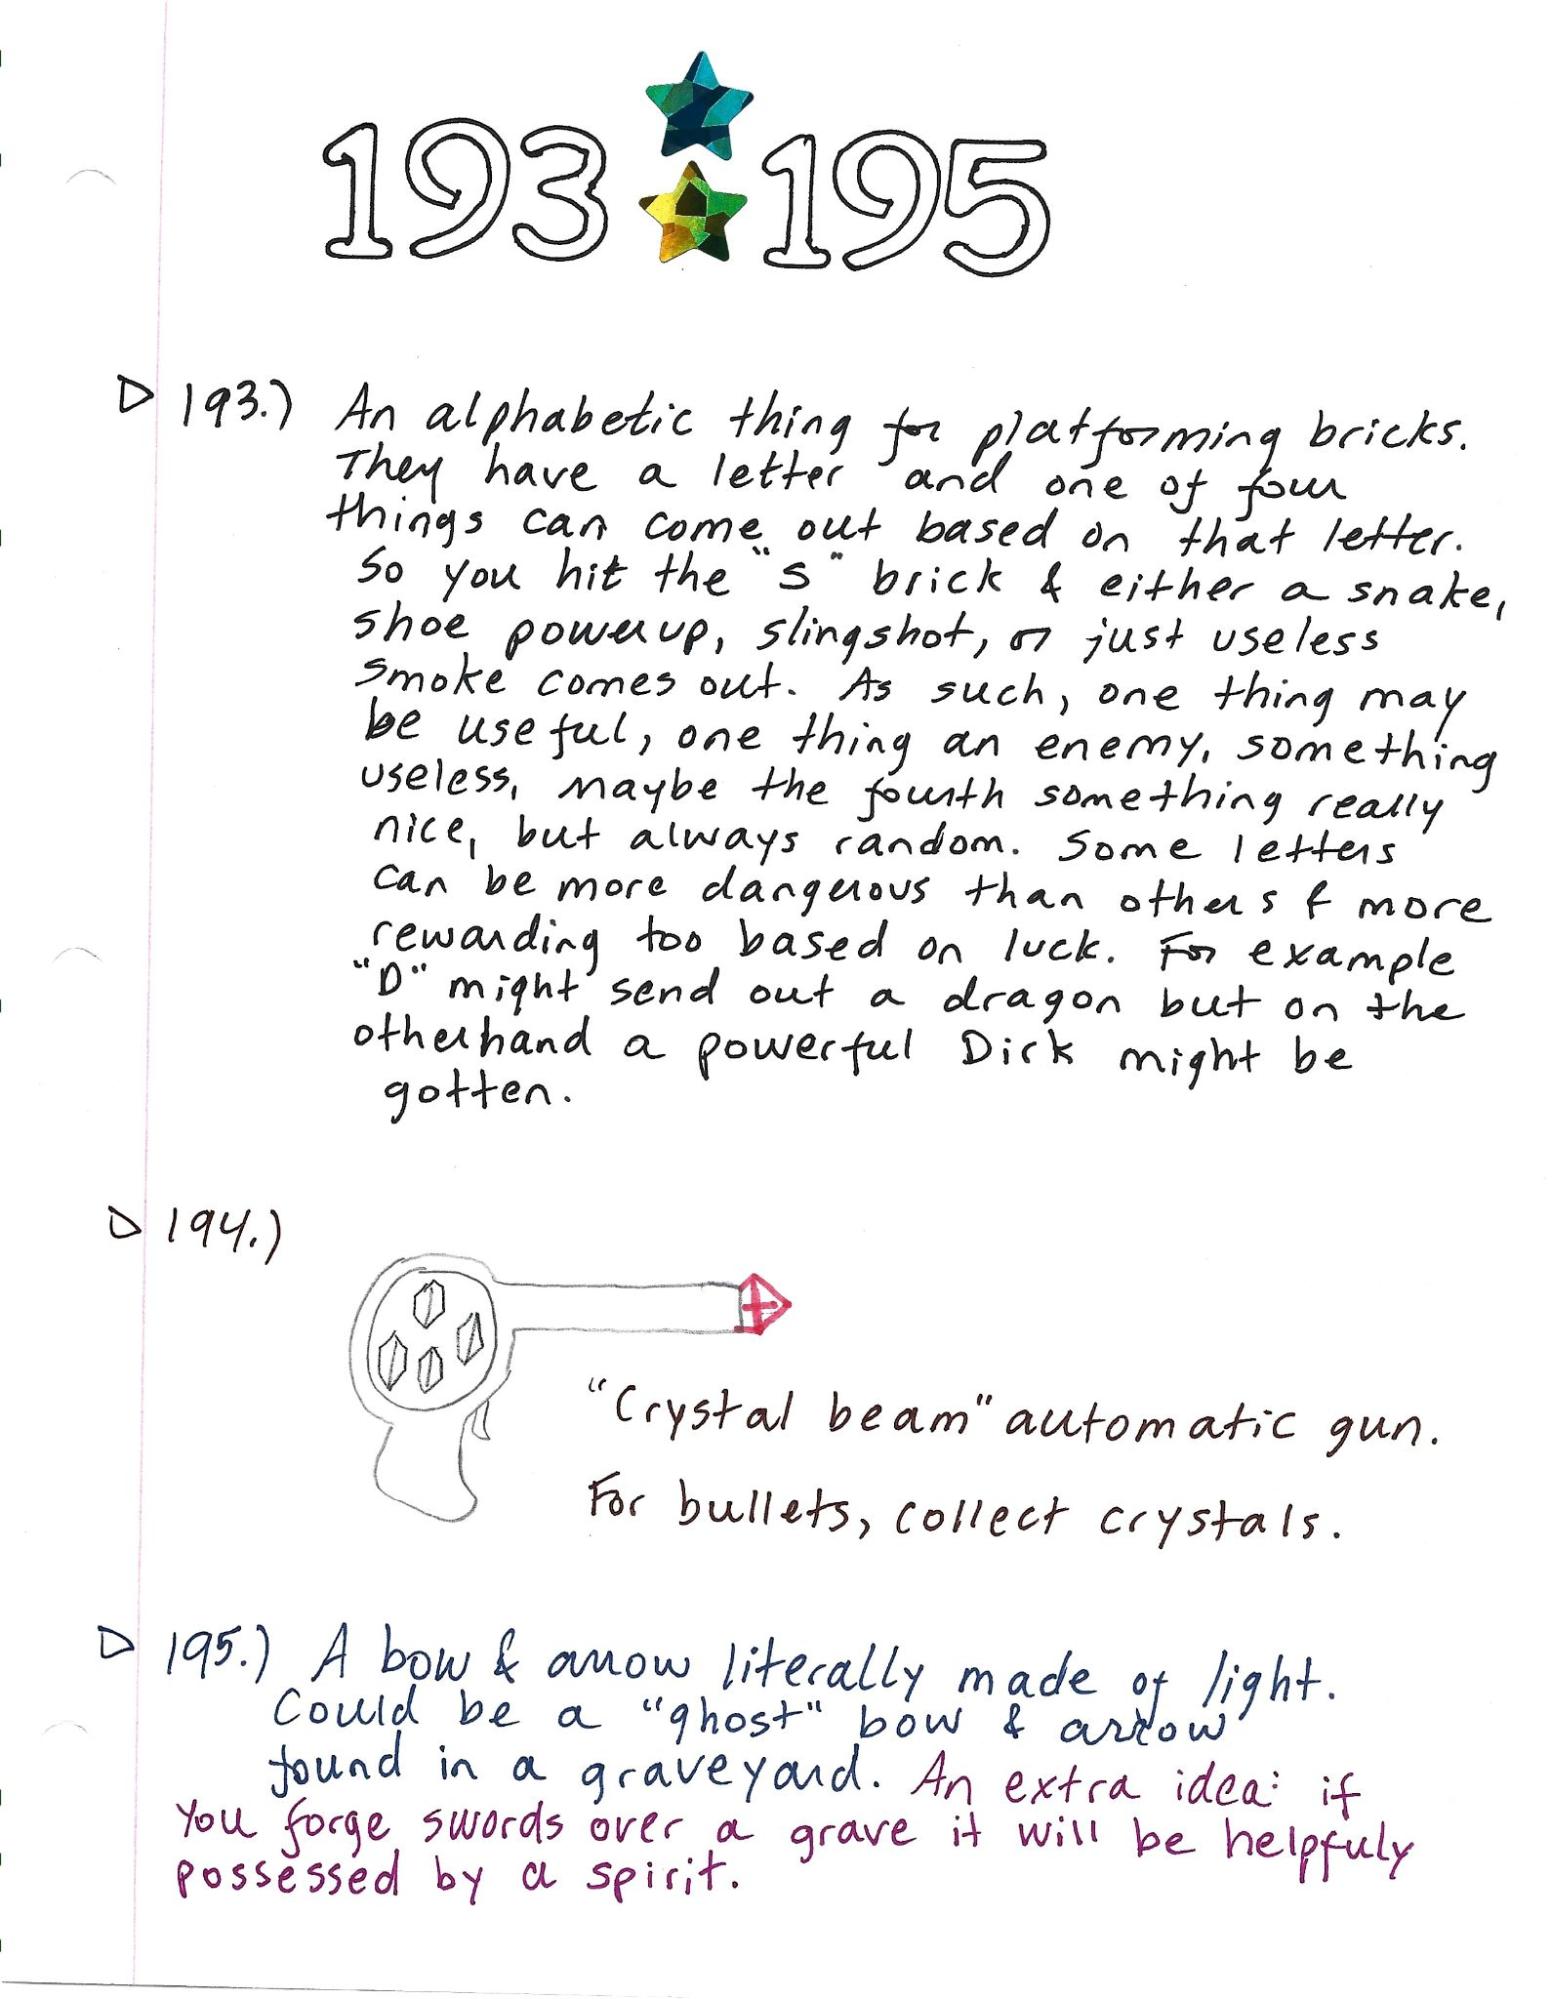 193 195
193.) An alphabetic thing for platforming bricks.
They have a letter and one of four
things can come out based on that letter.
So you hit the "S" brick & either a snake,
shoe powerup, slingshot, or just useless
smoke comes out. As such, one thing may
be useful, one thing an enemy, something
useless, maybe the fourth something really
nice, but always random. Some letters
can be more dangerous than others & more
rewarding too based on luck. For example
"D" might send out a dragon but on the
otherhand a powerful Dick might be
gotten.
194.)
"Crystal beam" automatic gun.
For bullets, collect crystals.
195.) A bow & arrow literally made of light.
Could be a "ghost" bow & arrow
found in a graveyard. An extra idea: if
you forge swords over a grave it will be helpfuly
possessed by a spirit.